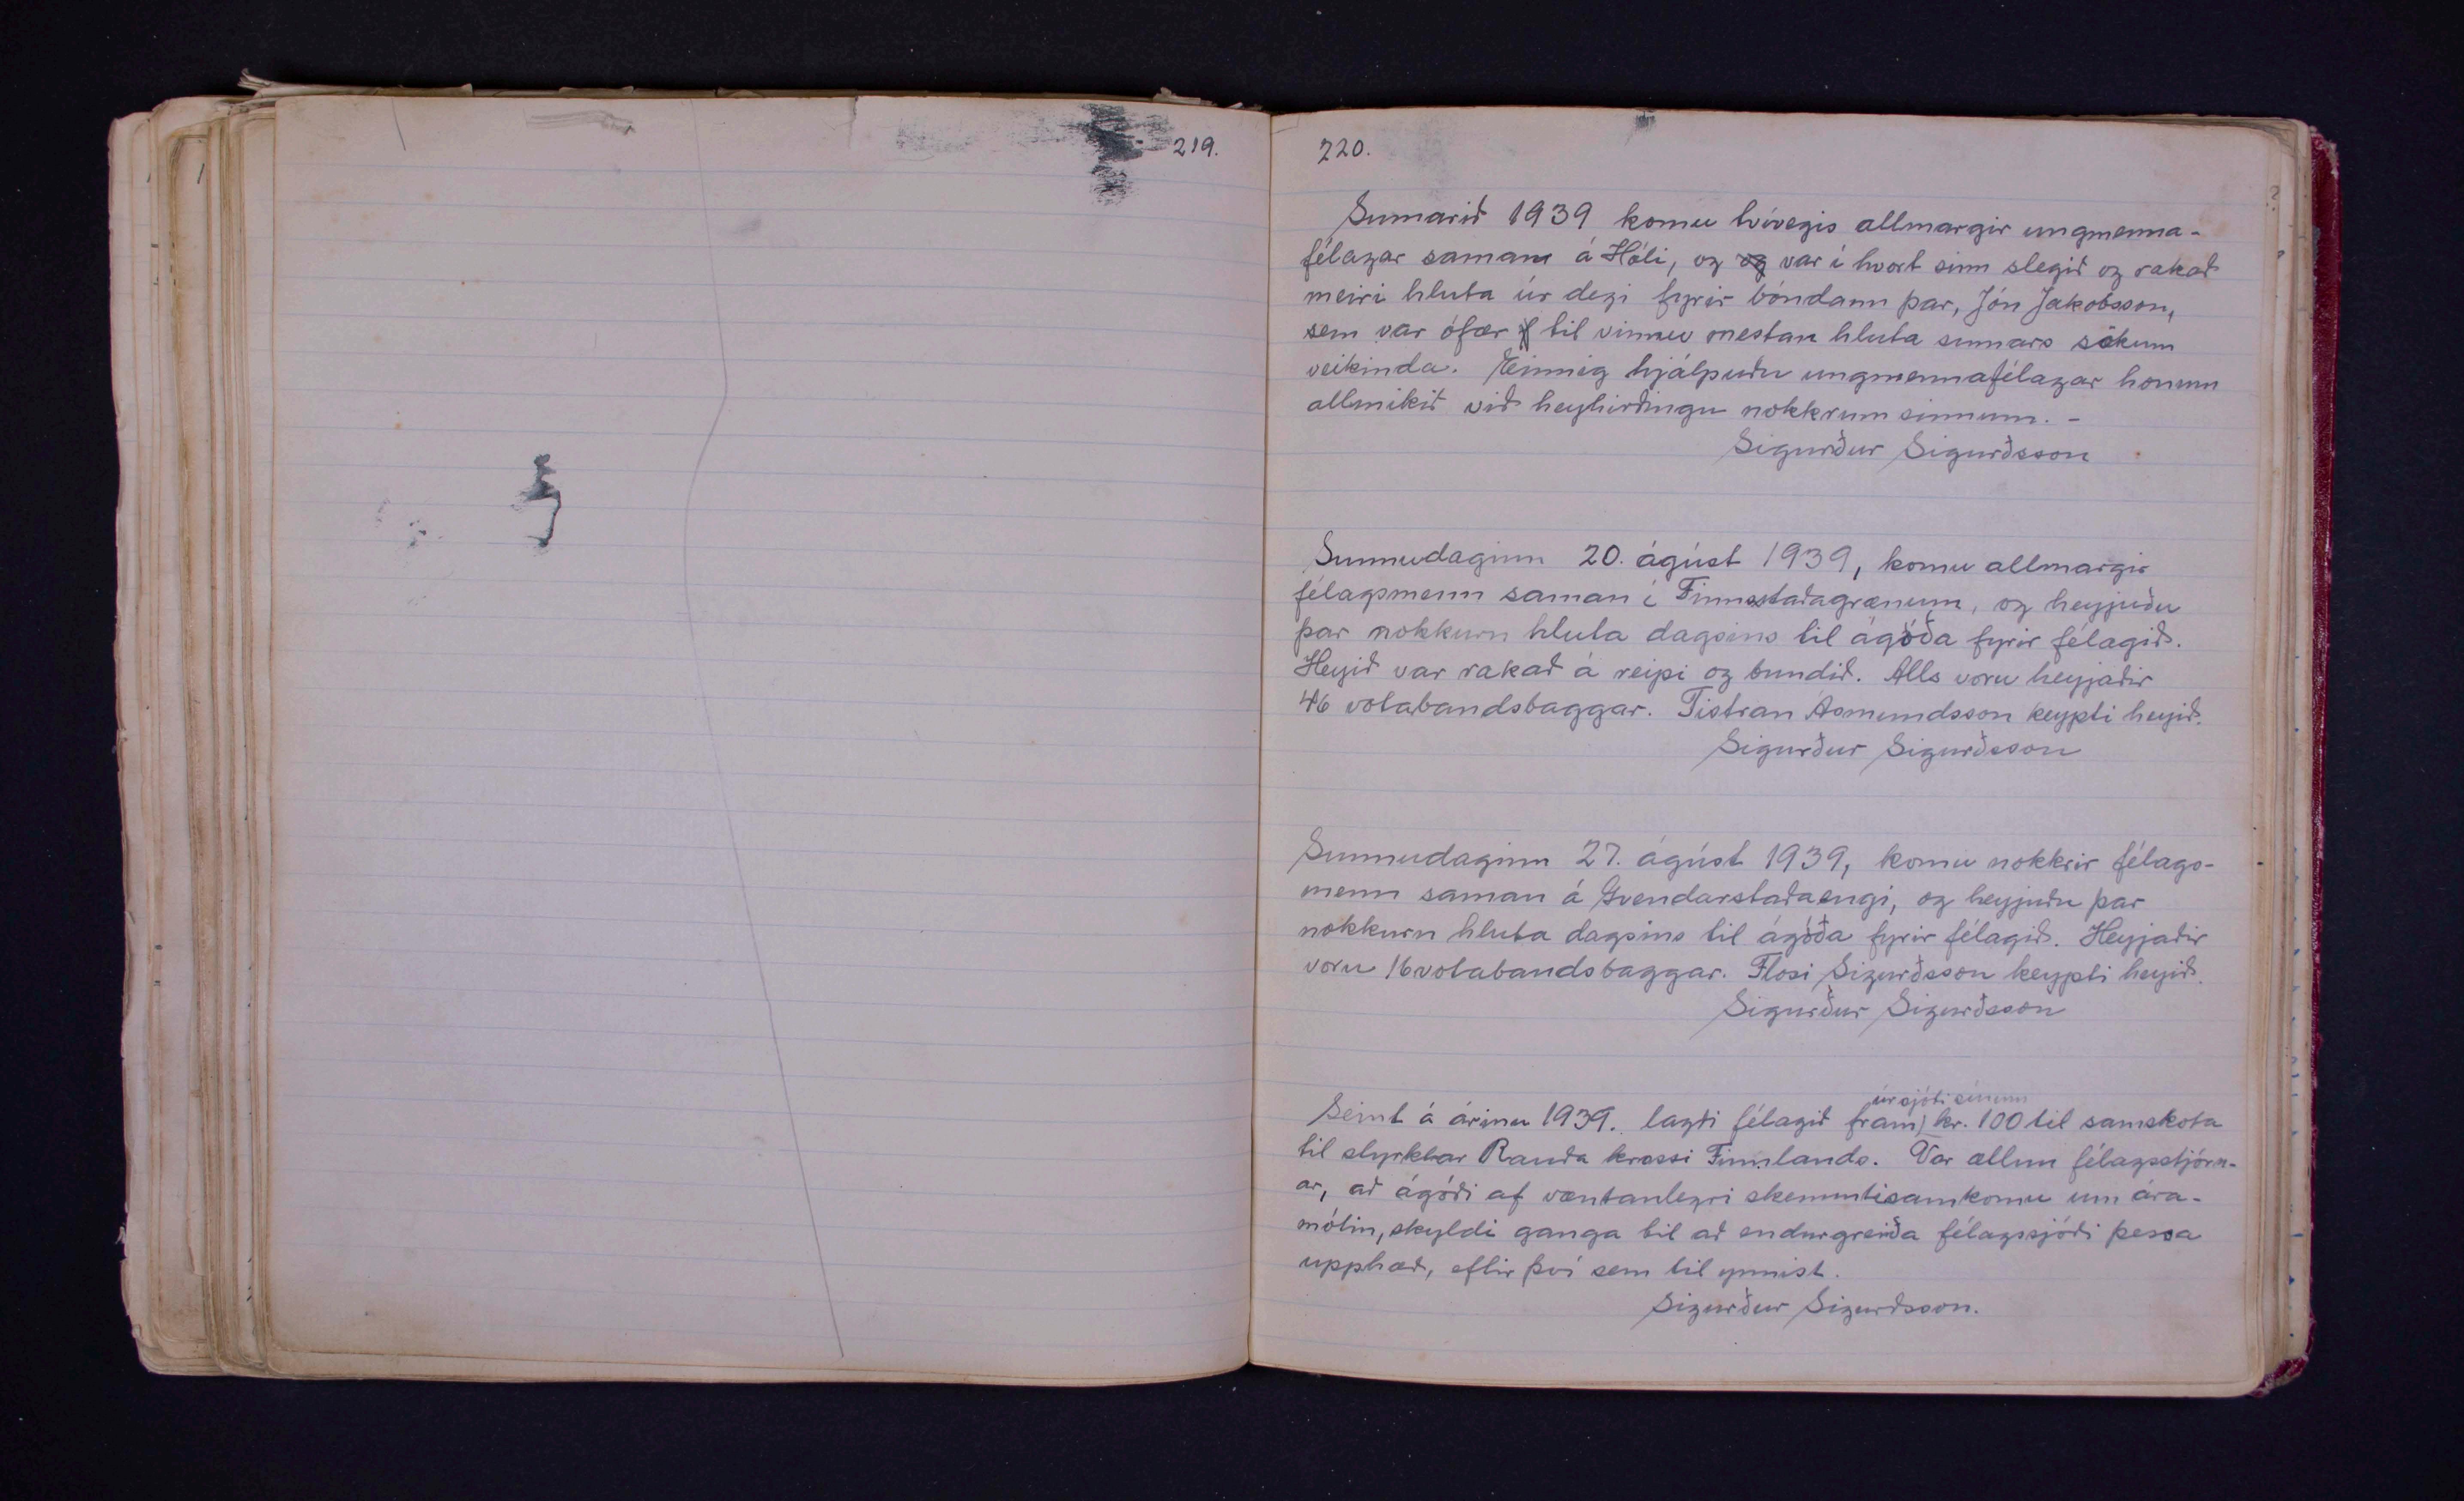 219.
220.
Sumarið 1939 komu tvívegis allmargir ungmenna-
félagar saman á Hóli, og og var í hvort sinn slegið og rakað
meiri hluta úr degi fyrir bóndann þar, Jón Jakobsson,
sem var ófær til vinnu mestan hluta sumars sökum
veikinda. Einnig hjálpuðu ungmennafélagar honum
allmikið við heyhirðingu nokkrum sinnum. -
Sigurður Sigurðsson
Sunnudaginn 20. ágúst 1939, komu allmargir
félagsmenn saman í Finnsstaðagrænum, og heyjuðu
þar nokkurn hluta dagsins til ágóða fyrir félagið.
Heyið var rakað á reipi og bundið. Alls voru heyjaðir
46 votabandsbaggar. Tistran Ásmundsson keypti heyið.
Sigurður Sigurðsson
Sunnudaginn 27. ágúst 1939, komu nokkrir félags-
menn saman á Gvendarstaðaengi, og heyjuðu þar
nokkurn hluta dagsins til ágóða fyrir félagið. Heyjaðir
voru 16 votabandsbaggar. Flosi Sigurðsson keypti heyið.
Sigurður Sigurðsson
úr sjóði sínum
Seint á árinu 1939. lagði félagið fram kr. 100 til samskota
til styrktar Rauða krossi Finnlands. Var ætlun félagsstjórn-
ar, að ágóði af væntanlegri skemmtisamkomu um ára-
mótin, skyldi ganga til að endurgreiða félagssjóði þessa
upphæð, eftir því sem til ynnist.
Sigurður Sigurðsson.